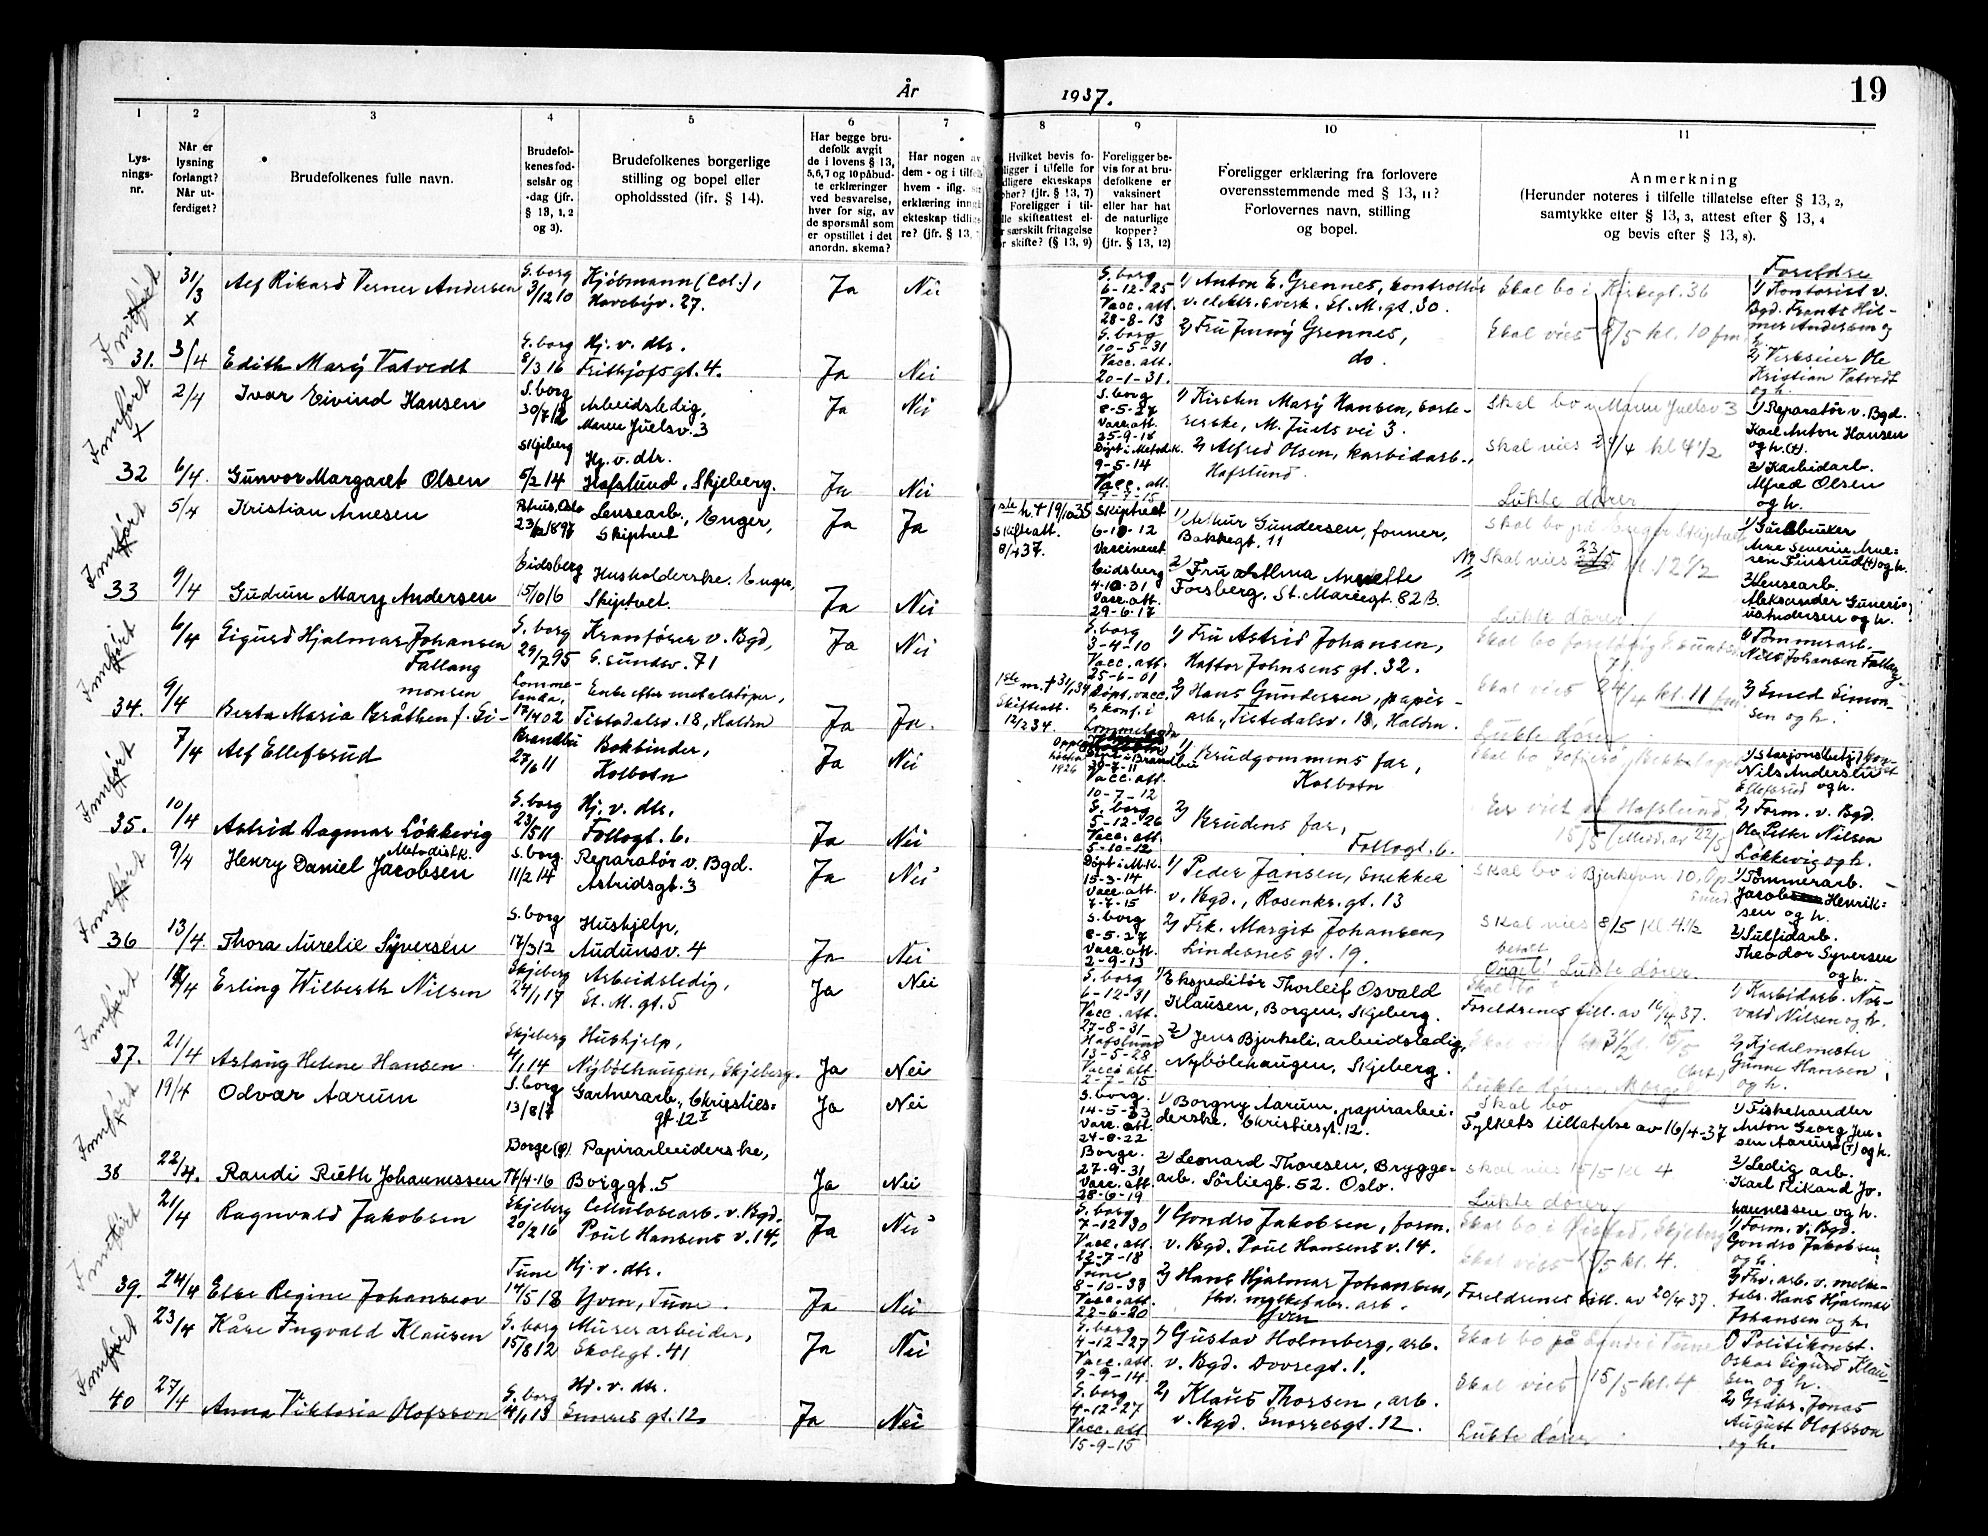 År
1937.
19
1
2
3
4
5
6
7
8
9
10
11
Lys-
nings-
nr.
Når er
lysning
forlangt?
Når ut-
ferdiget?
Brudefolkenes fulle navn.
Brudefol-
kenes fød-
selsår og
-dag (jfr.
§ 13, 1, 2
og 3).
Brudefolkenes borgerlige
stilling og bopel eller
opholdssted (jfr. § 14).
Har begge bru-
defolk avgit
de i lovens § 13,
5, 6, 7 og 10 påbud-
te erklæringer
ved besvarelse,
hver for sig, av
de spørsmål som
er opstillet i det
anordn. skema?
Har nogen av
dem - og i tilfelle
hvem - iflg. sin
erklæring inngått
ekteskap tidlige-
re? (jfr. § 13,
Hvilket bevis fo-
ligger i tilfelle for
tidligere ekteskaps
ophør? (jfr. § 13, 7)
Foreligger i til-
felle skifteattest el-
ler særskilt fritagelse
for skifte? (§ 13, 9)
Foreligger be-
vis for at bru-
defolkene er
vaksinert
eller har hat
de naturlige
kopper?
(jfr. § 13, 12)
Foreligger erklæring fra forlovere
overensstemmende med § 13, 11?
Forlovernes navn, stilling
og bopel.
Anmerkning
(Herunder noteres i tilfelle tillatelse efter § 13, 2,
samtykke efter § 13, 3, attest efter § 13, 4
og bevis efter § 13, 8).
Innført
31/3
x
Alf Rikard Verner Andersen
S.borg
3/12 10
Kjøbmann (col.),
Havebyv. 27.
Ja
Nei
S.borg
6-12-25
Vacc. att.
28-8-13
1) Anton E. Grennes, kontrollør
v. elektr. sverk. St. M. gt. 30.
Skal bo i Kirkegt. 36
Foreldre
1) Kontorist v.
Bgd. Frants Hil-
mer Andersen og
h.
31.
3/4
Edith Mary Vatvedt
S.borg
8/3 16
Hj. v. dtr.
Frithjofs gt. 4.
Ja
Nei
S.borg
10-5-31
Vacc. att.
20-1-31.
2) Fru Jenny Grennes,
do.
Skal vies 8/5 kl. 10 fm
2) Verkseier Ole
Kristian Vatvedt
og h.
Innført
x
2/4
Ivar Eivind Hansen
S.borg
30/7 12
Arbeidsledig,
Maren Juelsv. 3
Ja
Nei
S.borg
8-5-27
Vacc. att.
25-9-18
1) Kirsten Mary Hansen, sorte-
reske, M. Juels vei 3.
Skal bo i Maren Juelsv 3
1) Reparatør v. Bgd.
Karl Anton Hansen
og h. (†).
32
6/4.
Gunvor Margaret Olsen
Skjeberg
5/2 14
Hj. v. dtr.
Hafslund, Skjeberg.
Ja
Nei
Døpt i Metodk.
9-5-14
Vacc. att.
7-7-15
2) Alfred Olsen, karbidarb.,
Hafslund.
Skal vies 24/4 kl 4 1/2
Lukte dører
2) Karbidarb.
Alfred Olsen
og h.
Innført
5/4
Kristian Arnesen
Petrus, Oslo
23/12 1897
Lensearb., Enger,
Skiptvet
Ja
Ja
1ste h. † 19/10 35
Skifteatt.
8/4 37.
Skiptvet
6-10-12
Vaccineret
1) Arthur Gundersen, former,
Bakkegt. 11
Skal bo på Enger Skiptvet
1) Gårdbruker
Arne Severin Arne-
sen Finsrud (†) og h.
33
9/4
Gudrun Mary Andersen
Eidsberg
15/10 16
Husholderske. Enger,
Skiptvet.
Ja
Nei
Eidsberg
4-10-31
Vacc. att.
29-6-17
2) Fru Alma Annette
Forsberg, St. Mariegt. 82 B.
NB
Skal vies kl. 12 1/2
Lukte dører
2) Lensearb.
Aleksander Guneri-
us Andersen og h.
Innført
6/4
Sigurd Hjalmar Johansen
Fallang
S.borg
29/7 95
Kranfører v. Bgd,
G. sundsv. 71
Ja
Nei
S.borg
3-4-10
Vacc. att.
25-6-01
1) Fru Astrid Johansen,
Haftor Johnsens gt. 32.
71.
1) Tømmerarb.
Nils Johansen Fallang.
34.
9/4
monsen
Berta Maria Bråthen f. Si-
Lomme-
landa,
17/4 02
Enke efter metalstøper,
Tistedalsv. 18, Halden
Ja
Ja.
1ste m. † 31/1 34
Skifteatt.
12/2 34.
Døpt, vacc.
og konf. i
Lommelanda
2) Hans Gundersen, papir-
arb., Tistedalsv. 18, Halden.
Skal vies 24/4 kl. 11 fm
Lukte dører
2) Smed Simon-
sen og h.
Innført
7/4
Alf Ellefsrud
Brandbu
27/6 11
Bokbinder,
Kolbotn
Ja
Nei
1926
Brandbu
30-7-11
Vacc. att.
10-7-12
1) Brudgommens far,
Kolbotn
Nils Anderssen
Ellefsrud og h.
35.
10/4
Astrid Dagmar Løkkevig
S.borg
23/5 11
Hj. v. dtr.
Follogt. 6.
Ja
Nei
S.borg
5-12-26
Vacc. att.
5-10-12
2) Brudens far,
Follogt. 6.
Er viet på Hafslund
15/5 (Medd. av 22/5)
2) Form. v. Bgd.
Ole Petter Nilsen
Løkkevig og h.
Innført
9/4
Metodistk.
Henry Daniel Jacobsen
S.borg.
11/2 14
Reparatør v. Bgd.
Astridsgt. 3
Ja
Nei
Døpt i M.K.
15-3-14
Vacc. att.
7-7-15
1) Peder Jansen, snekker
v. Bgd., Rosenkr. gt. 13
Skal bo i Bjerkevn 10, Op-
sund
1) Tømmerarb.
Jacob Henrik-
sen og h.
36
13/4.
Thora Aurelie Syversen
S.borg
17/3 12
Hushjelp,
Audunsv. 4
Ja
Nei
S.borg
8-5-27
Vacc. att.
2-9-13
2) Frk. Margit Johansen,
Lindesnes gt. 19.
Skal vies 8/5 kl 4.1/2
betalt
Orgel! Lukte dører.
2) Sulfidarb.
Theodor Syversen
og h.
Innført
Erling Wilberth Nilsen
Skjeberg
24/1 17
Arbeidsledig,
St. M. gt. 5
Ja
Nei
S.borg
6-12-31
Vacc. att.
27-8-31
1) Ekspeditør Thorleif Osvald
Klausen, Borgen, Skjeberg.
Skal bo i
Foreldrenes till. av 16/4 37.
1) Karbidarb. Nor-
vald Nilsen og h.
37.
21/4
Aslaug Helene Hansen
Skjeberg
4/1 14
Hushjelp,
Nybølehaugen, Skjeberg.
Ja
Nei
Hafslund
13-5-28
Vacc. att
2-7-15
2) Jens Bjerkeli, arbeidsledig,
Nybølehaugen, Skjeberg.
Skal vies kl 3 1/2 15/5
Lukte dører Orgel
2) Kjedelmester
Gunne Hansen
og h.
Innført
19/4
Odvar Aarum
S.borg
13/8 17
Gartnerarb., Christies-
gt. 12 I
Ja
Nei
S.borg.
14-5-33
Vacc. att.
24-8-22
1) Borgny Aarum, papirarbei-
derske. Christiesgt. 12.
Skal bo
Fylkets tillatelse av 16/4-37
1) Fiskehandler
Anton Georg Jen-
sen Aarum (†) og h.
38
22/4.
Randi Ruth Johannessen
Borge (Ø).
17/4-16
Papirarbeiderske,
Borggt. 5
Ja
Nei
Borge.
27-9-31
Vacc. att.
28-6-19
2) Leonard Thoresen, Brygge-
arb. Sørliegt. 52. Oslo.
Skal vies 15/5 kl 4
Lukte dører
2) Ledig arb.
Karl Rikard Jo-
hannessen og h.
Innført
21/4
Ragnvald Jakobsen
Skjeberg
20/2 16
Cellulosearb. v. Bgd.
Poul Hansens v. 14,
Ja
Nei
S.borg
7-12-30
Vacc. att.
22-7-18
1) Gondro Jakobsen, form.
v. Bgd. Poul Hansens v. 14.
1) Form. v. Bgd.
Gondro Jakobsen
og h.
39.
24/4
Else Regine Johansen
Tune
14/5 18
Hj. v. dtr.
Yven, Tune.
Ja
Nei
Tune
8-10-33
Vacc. att.
22-6-20
2) Hans Hjalmar Johansen,
fhv. melkefabr. arb.
Yven
Skal vies 15/5 kl. 4.
Foreldrenes till. av 20/4 37.
2) Fhv. arb. v. melke-
fabr. Hans Hjalmar
Johansen og h.
Innført
23/4
Kåre Ingvald Klausen
S.borg
15/8 12
Murerarbeider,
Skolegt. 41
Ja
Nei
S.borg
4-12-27
Vacc. att.
9-9-14
1) Gustav Holmberg, arb.
v. Bgd. Dovregt. 1.
Skal bo på Sande i Tune
1) Politikonst.
Oskar Sigurd Klau-
sen og h.
40
27/4
Anna Viktoria Olofsson
S.borg
4/1 13
Hj. v. dtr.
Snorres gt. 12.
Ja
Nei
S.borg
4-12-27
Vacc. att
15-9-15
2) Klaus Thorsen, arb.
v. Bgd. Snorresgt. 12.
Skal vies 15/5 kl. 4
Lukte dører
2) Grdbr. Jonas
August Olofsson
og h.